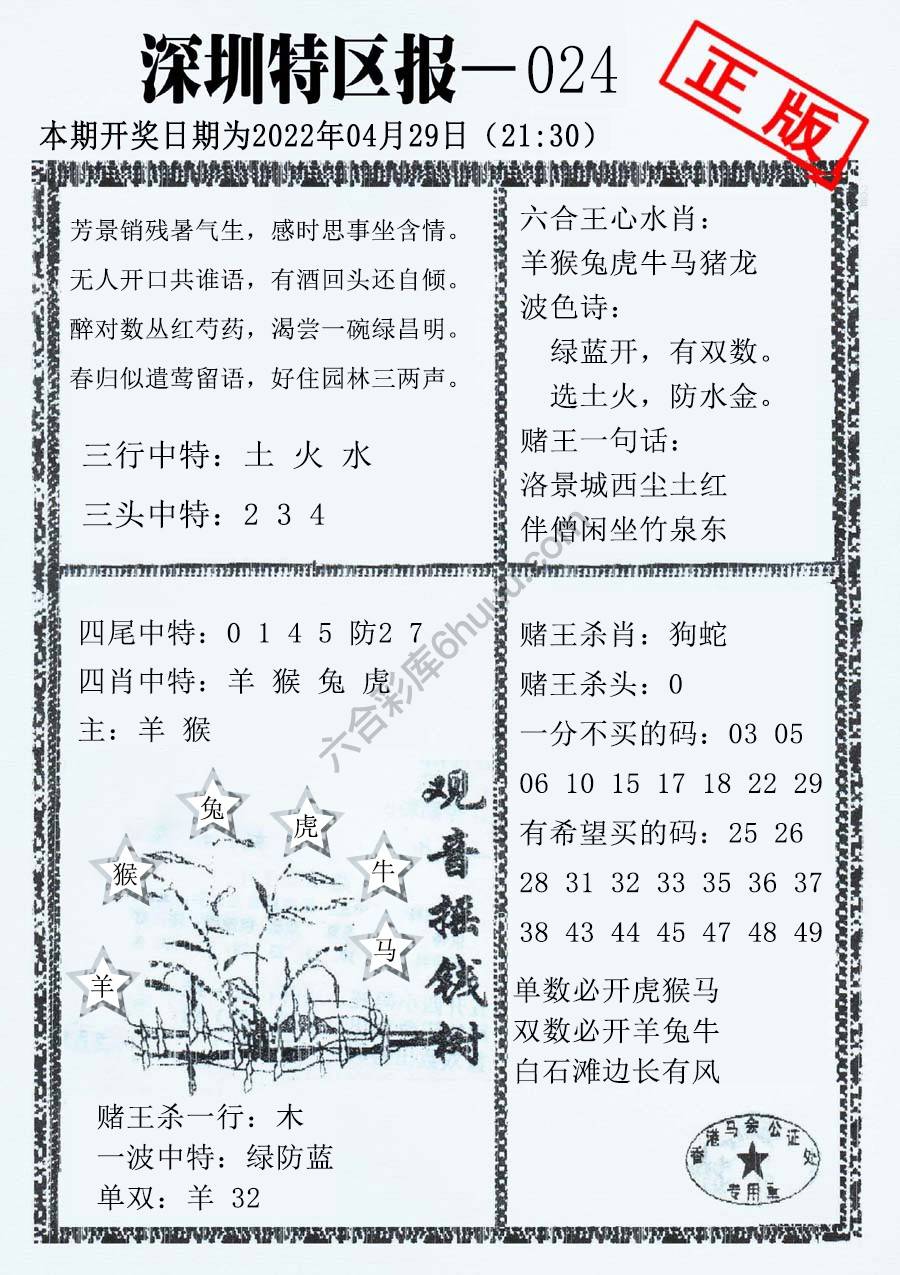 深圳特区报—024
正版
本期开奖日期为2022年04月29日（21:30）
芳景销残暑气生，感时思事坐含情。
无人开口共谁语，有酒回头还自倾。
醉对数丛红芍药，渴尝一碗绿昌明。
春归似遣莺留语，好住园林三两声。
三行中特：土 火 水
三头中特：2 3 4
六合王心水肖：
羊猴兔虎牛马猪龙
波色诗：
绿蓝开，有双数。
选土火，防水金。
赌王一句话：
洛景城西尘土红
伴僧闲坐竹泉东
四尾中特：0 1 4 5 防2 7
四肖中特：羊 猴 兔 虎
主：羊 猴
兔
虎
猴
牛
马
羊
观音摇钱树
赌王杀一行：木
一波中特：绿防蓝
单双：羊 32
赌王杀肖：狗蛇
赌王杀头：0
一分不买的码：03 05
06 10 15 17 18 22 29
有希望买的码：25 26
28 31 32 33 35 36 37
38 43 44 45 47 48 49
单数必开虎猴马
双数必开羊兔牛
白石滩边长有风
香港马会公证处
专用章
六合彩库6huuu.com